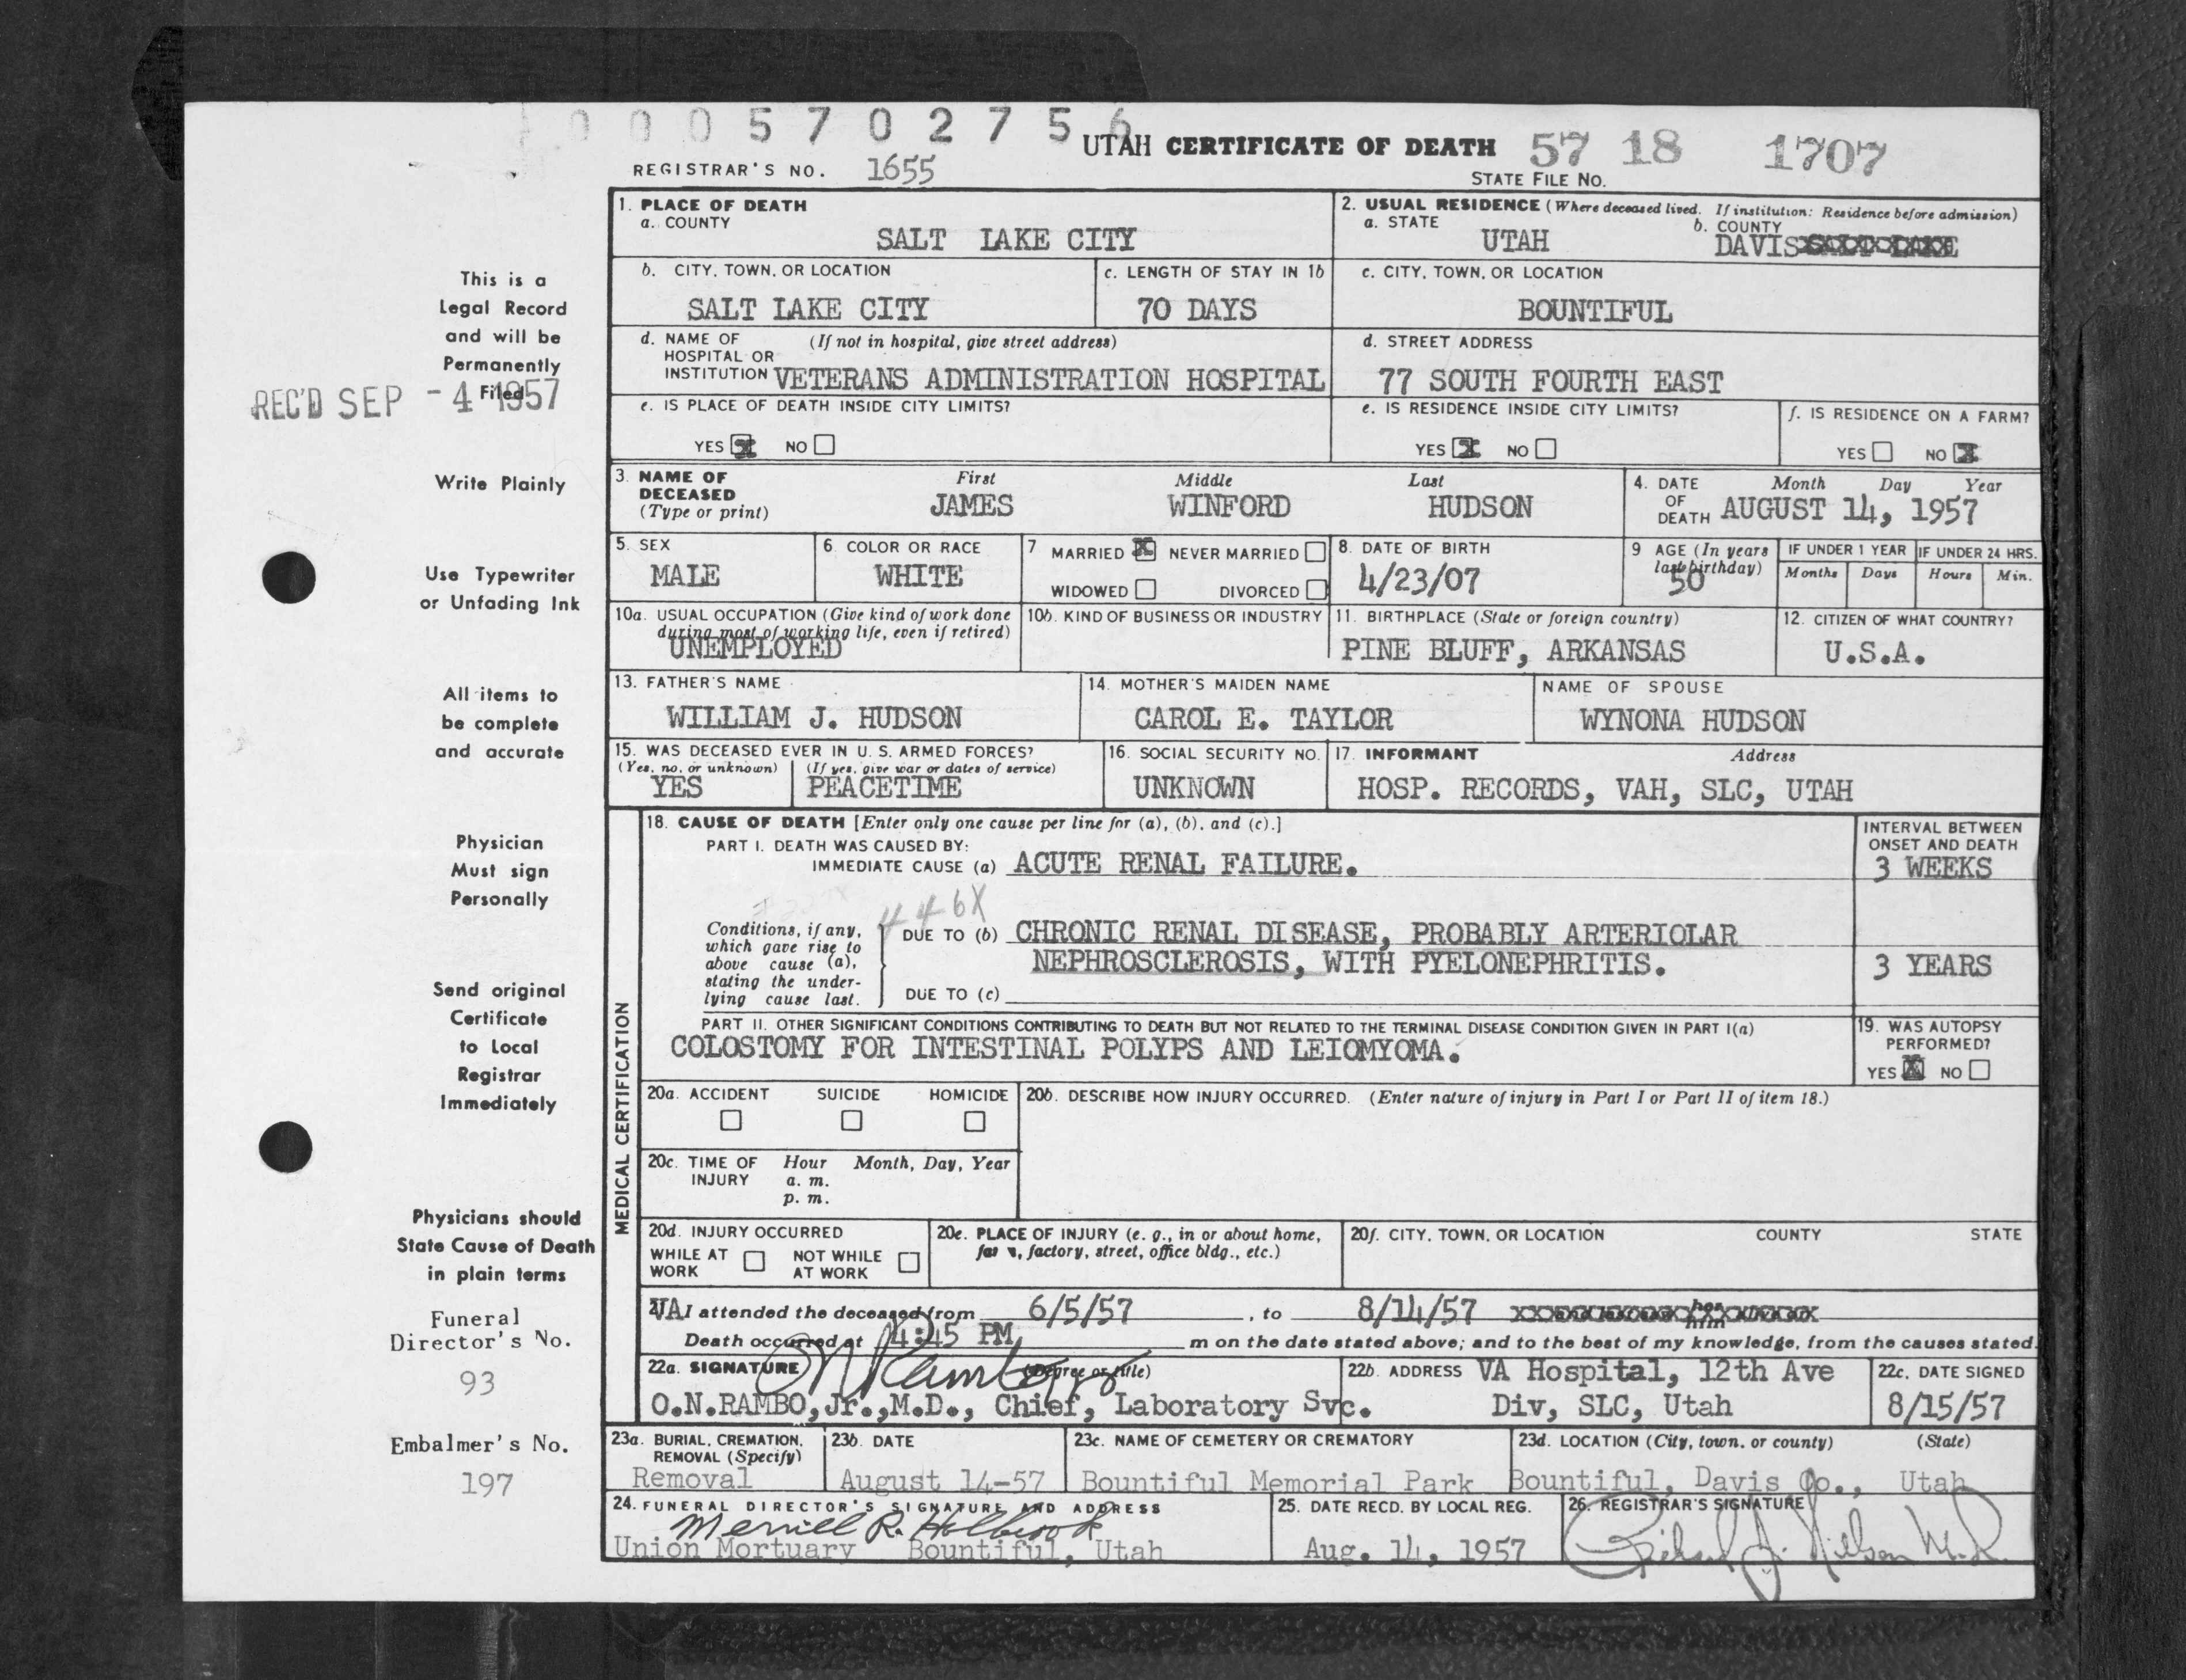 0 0 0 5 7 0 2 7 5 6
UTAH CERTIFICATE OF DEATH 57 18 1707
REGISTRAR'S NO. 1655
STATE FILE NO.
1. PLACE OF DEATH
a. COUNTY
SALT LAKE CITY
2. USUAL RESIDENCE (Where deceased lived. If institution: Residence before admission)
a. STATE
UTAH
b. COUNTY
DAVIS SALT LAKE
b. CITY, TOWN, OR LOCATION
SALT LAKE CITY
c. LENGTH OF STAY IN 1b
70 DAYS
c. CITY, TOWN, OR LOCATION
BOUNTIFUL
d. NAME OF HOSPITAL OR INSTITUTION (If not in hospital, give street address)
VETERANS ADMINISTRATION HOSPITAL
d. STREET ADDRESS
77 SOUTH FOURTH EAST
e. IS PLACE OF DEATH INSIDE CITY LIMITS?
YES X NO
e. IS RESIDENCE INSIDE CITY LIMITS?
YES X NO
f. IS RESIDENCE ON A FARM?
YES NO X
3. NAME OF DECEASED (Type or print)
First Middle Last
JAMES WINFORD HUDSON
4. DATE OF DEATH
Month Day Year
AUGUST 14, 1957
5. SEX
MALE
6. COLOR OR RACE
WHITE
7 MARRIED X NEVER MARRIED
WIDOWED DIVORCED
8. DATE OF BIRTH
4/23/07
9 AGE (In years last birthday)
50
IF UNDER 1 YEAR
Months Days
IF UNDER 24 HRS.
Hours Min.
10a. USUAL OCCUPATION (Give kind of work done during most of working life, even if retired)
UNEMPLOYED
10b. KIND OF BUSINESS OR INDUSTRY
11. BIRTHPLACE (State or foreign country)
PINE BLUFF, ARKANSAS
12. CITIZEN OF WHAT COUNTRY?
U.S.A.
13. FATHER'S NAME
WILLIAM J. HUDSON
14. MOTHER'S MAIDEN NAME
CAROL E. TAYLOR
NAME OF SPOUSE
WYNONA HUDSON
15. WAS DECEASED EVER IN U. S. ARMED FORCES?
(Yes, no, or unknown) (If yes, give war or dates of service)
YES PEACETIME
16. SOCIAL SECURITY NO.
UNKNOWN
17. INFORMANT Address
HOSP. RECORDS, VAH, SLC, UTAH
MEDICAL CERTIFICATION
18. CAUSE OF DEATH [Enter only one cause per line for (a), (b), and (c).]
PART I. DEATH WAS CAUSED BY:
IMMEDIATE CAUSE (a) ACUTE RENAL FAILURE.
INTERVAL BETWEEN ONSET AND DEATH
3 WEEKS
446X
Conditions, if any, which gave rise to above cause (a), stating the underlying cause last.
DUE TO (b) CHRONIC RENAL DISEASE, PROBABLY ARTERIOLAR
NEPHROSCLEROSIS, WITH PYELONEPHRITIS.
3 YEARS
DUE TO (c)
PART II. OTHER SIGNIFICANT CONDITIONS CONTRIBUTING TO DEATH BUT NOT RELATED TO THE TERMINAL DISEASE CONDITION GIVEN IN PART I(a)
COLOSTOMY FOR INTESTINAL POLYPS AND LEIOMYOMA.
19. WAS AUTOPSY PERFORMED?
YES X NO
20a. ACCIDENT SUICIDE HOMICIDE
20b. DESCRIBE HOW INJURY OCCURRED. (Enter nature of injury in Part I or Part II of item 18.)
20c. TIME OF INJURY Hour Month, Day, Year
a. m.
p. m.
20d. INJURY OCCURRED
WHILE AT WORK NOT WHILE AT WORK
20e. PLACE OF INJURY (e. g., in or about home, farm, factory, street, office bldg., etc.)
20f. CITY, TOWN, OR LOCATION COUNTY STATE
21. VA I attended the deceased from 6/5/57, to 8/14/57
Death occurred at 4:45 PM m on the date stated above; and to the best of my knowledge, from the causes stated.
22a. SIGNATURE (Degree or title)
O N Rambo Jr
O.N.RAMBO,Jr.,M.D., Chief, Laboratory Svc.
22b. ADDRESS VA Hospital, 12th Ave
Div, SLC, Utah
22c. DATE SIGNED
8/15/57
23a. BURIAL, CREMATION, REMOVAL (Specify)
Removal
23b. DATE
August 14-57
23c. NAME OF CEMETERY OR CREMATORY
Bountiful Memorial Park
23d. LOCATION (City, town, or county) (State)
Bountiful, Davis Co., Utah
24. FUNERAL DIRECTOR'S SIGNATURE AND ADDRESS
Merrill R. Holbrook
Union Mortuary Bountiful, Utah
25. DATE RECD. BY LOCAL REG.
Aug. 14, 1957
26. REGISTRAR'S SIGNATURE
Richard J. Nilson M.D.
This is a
Legal Record
and will be
Permanently
Filed
REC'D SEP - 4 1957
Write Plainly
Use Typewriter
or Unfading Ink
All items to
be complete
and accurate
Physician
Must sign
Personally
Send original
Certificate
to Local
Registrar
Immediately
Physicians should
State Cause of Death
in plain terms
Funeral
Director's No.
93
Embalmer's No.
197